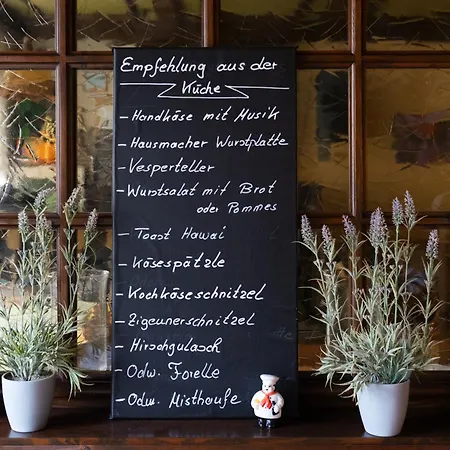 Empfehlung aus der
Küche
- Handkäse mit Musik
- Hausmacher Wurstplatte
- Vesperteller
- Wurstsalat mit Brot
oder Pommes
- Toast Hawai
- Käsespätzle
- Kochkäseschnitzel
- Zigeunerschnitzel
- Hirschgulasch
- Odw. Forelle
- Odw. Misthaufe